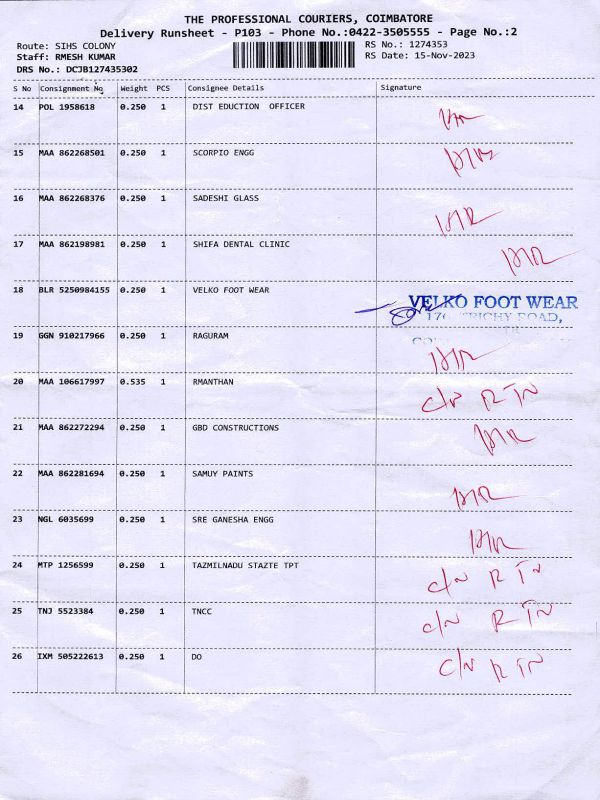 THE PROFESSIONAL COURIERS, COIMBATORE
Delivery Runsheet - P103 - Phone No.:0422-3505555 - Page No.:2
Route: SIHS COLONY RS No.: 1274353
Staff: RMESH KUMAR RS Date: 15-Nov-2023
DRS No.: DCJB127435302
S No Consignment No Weight PCS Consignee Details Signature
14 POL 1958618 0.250 1 DIST EDUCTION OFFICER
15 MAA 862268501 0.250 1 SCORPIO ENGG
16 MAA 862268376 0.250 1 SADESHI GLASS
17 MAA 862198981 0.250 1 SHIFA DENTAL CLINIC
18 BLR 5250984155 0.250 1 VELKO FOOT WEAR VELKO FOOT WEAR
TRICHY ROAD,
19 GGN 910217966 0.250 1 RAGURAM
20 MAA 106617997 0.535 1 RMANTHAN
21 MAA 862272294 0.250 1 GBD CONSTRUCTIONS
22 MAA 862281694 0.250 1 SAMUY PAINTS
23 NGL 6035699 0.250 1 SRE GANESHA ENGG
24 MTP 1256599 0.250 1 TAZMILNADU STAZTE TPT C/N R TN
25 TNJ 5523384 0.250 1 TNCC C/N R TN
26 IXM 505222613 0.250 1 DO C/N R TN